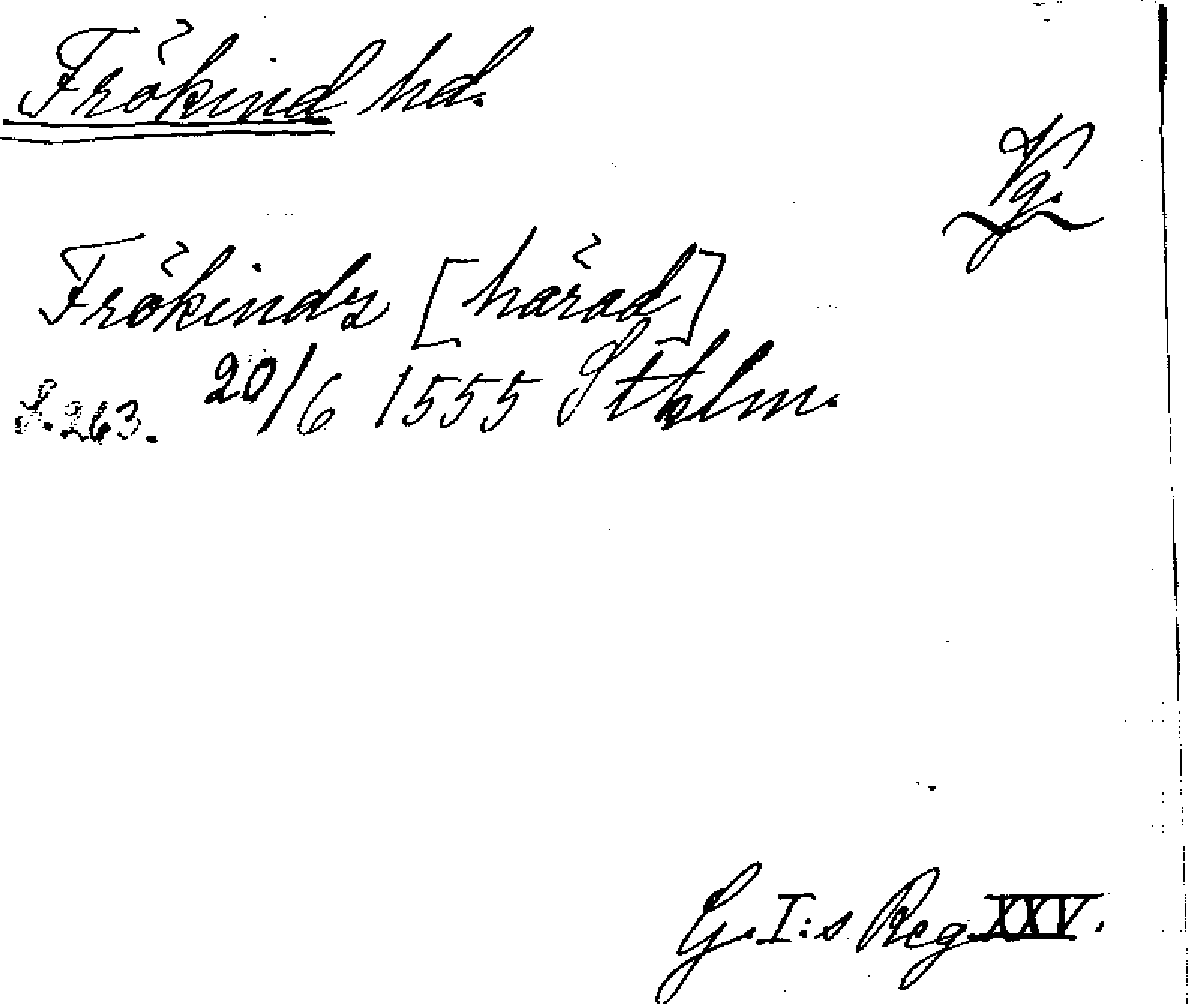 Frökind hd.
Vg.
Frökindz [härad]
S. 263. 20/6 1555 Sthlm.
G. I:s Reg XXV.